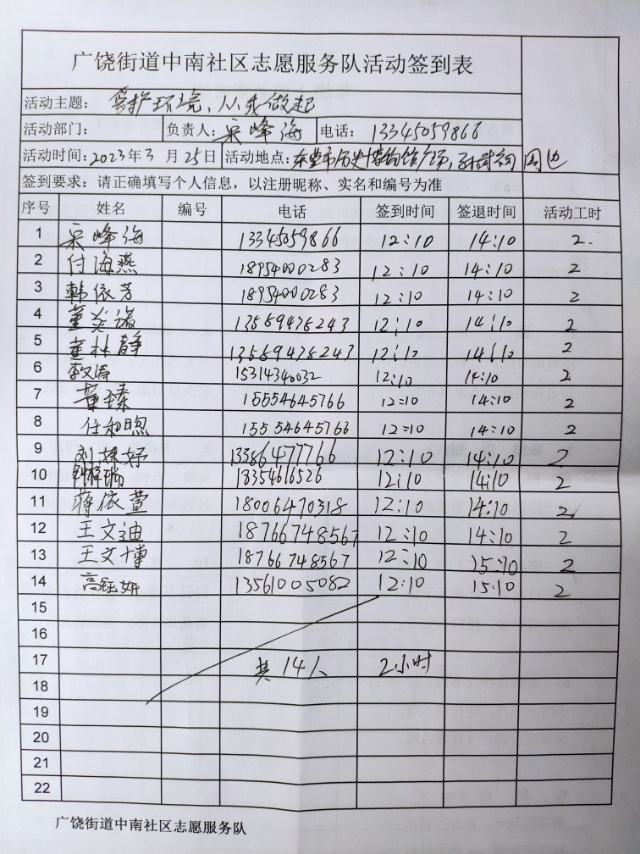 广饶街道中南社区志愿服务队活动签到表
活动主题： 爱护环境，从我做起
活动部门： 负责人：采峰海 电话：13345059866
活动时间：2023年3月25日 活动地点： 历史博物馆 周边
签到要求：请正确填写个人信息，以注册昵称、实名和编号为准
序号 姓名 编号 电话 签到时间 签退时间 活动工时
1 采峰海 13345059866 12:10 14:10 2.
2 付海燕 18954000283 12:10 14:10 2
3 韩依芳 18954000283 12:10 14:10 2
4 13589478243 12:10 14:10 2
5 林静 13589478243 12:10 14:10 2
6 15314340032 12:10 14:10 2
7 15554645766 12:10 14:10 2
8 任和煦 15554645766 12:10 14:10 2
9 刘姝妤 13386477766 12:10 14:10 2
10 13354616526 12:10 14:10 2
11 蒋依萱 18006470318 12:10 14:10 2
12 王文迪 18766748567 12:10 14:10 2
13 王文博 18766748567 12:10 15:10 2
14 高钰妍 13561005082 12:10 15:10 2
15
16
17 共14人 2小时
18
19
20
21
22
广饶街道中南社区志愿服务队